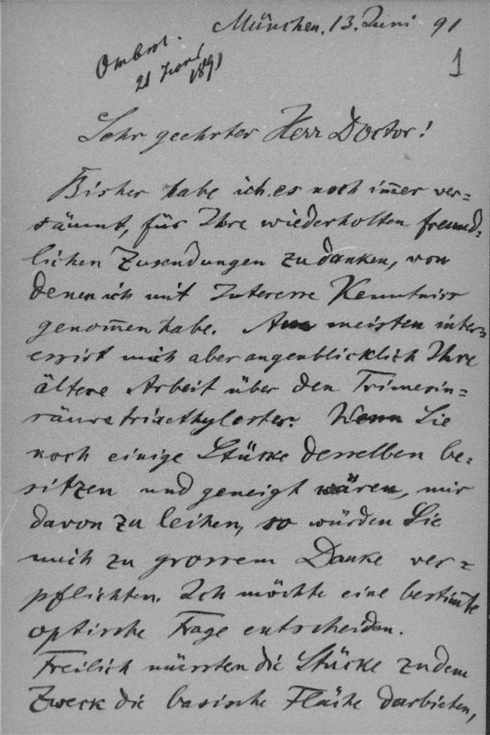 München, 13. Juni 91
21 Juni
1891
1
Sehr geehrter Herr Doctor!
Bisher habe ich es noch im̅er ver=
säumt, für Ihre wiederholten freund=
lichen Zusendungen zu danken, von
denen ich mit Interesse Kenntniss
genom̅en habe. Am meisten inter=
essirt mich aber augenblicklich Ihre
ältere Arbeit über den Trimesin=
säuretriaethylester. Wenn Sie
noch einige Stücke desselben be=
sitzen und geneigt wären, mir
davon zu leihen, so würden Sie
mich zu grossem Danke ver=
pflichten. Ich möchte eine bestim̅te
optische Frage entscheiden.
Freilich müssten die Stücke zu dem
Zweck die basische Fläche darbieten,